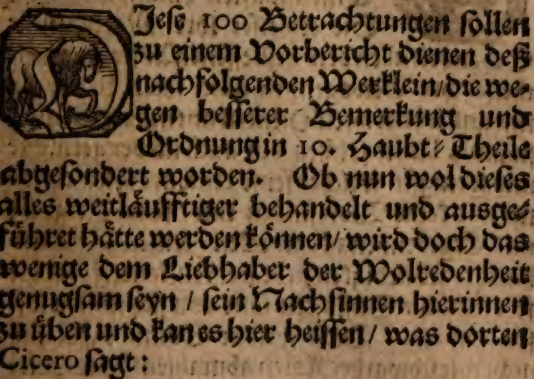 DIese 100 Betrachtungen sollen
zu einem Vorbericht dienen deß
nachfolgenden Werklein/die we-
gen besserer Bemerkung und
Ordnung in 10. Haubt-Theile
abgesondert worden. Ob nun wol dieses
alles weitläufftiger behandelt und ausge-
führet hätte werden können/ wird doch das
wenige dem Liebhaber der Wolredenheit
genugsam seyn / sein Nachsinnen hierinnen
zu üben und kan es hier heissen / was dorten
Cicero sagt: